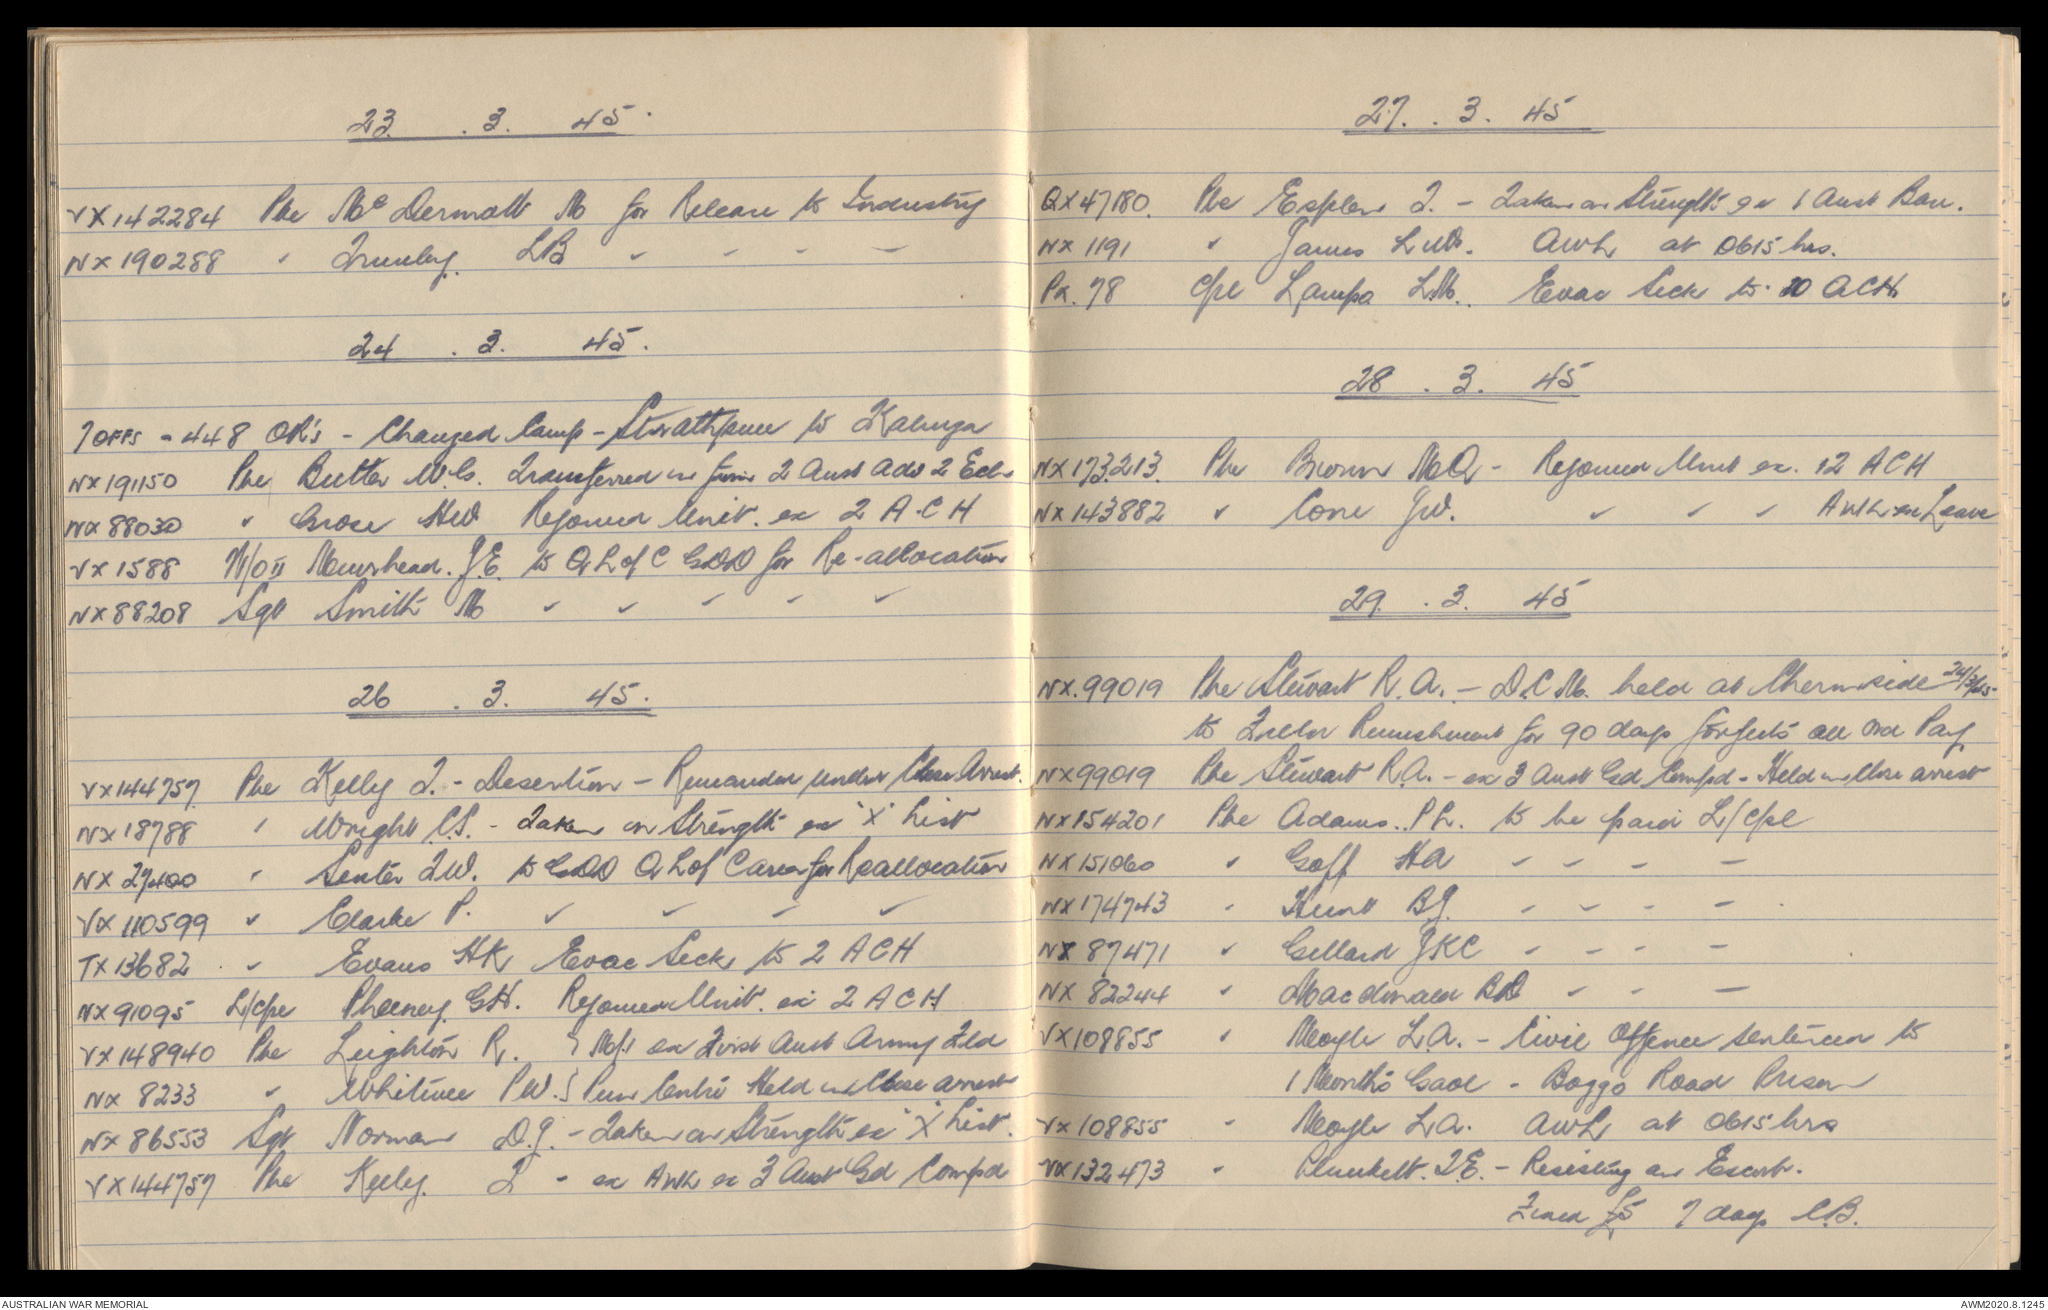 23 . 3. 45.
VX142284 Pte McDermott M for Release to Industry
NX190288 " LB " " " "
24 . 3. 45.
7 OFFS - 448 OR's - Changed Camp - Strathpine to Kalinga
NX191150 Pte Butter W.G. Transferred in from 2 Aust Adv 2 Ech
NX88030 " Grose HW Rejoined Unit. ex 2 A.C H
VX1588 W/O II Muirhead. J.E. to Q L of C GDD for Re-allocation
NX88208 Sgt Smith M " " " " "
26 . 3. 45.
VX144757 Pte Kelly T. - Desertion - Remanded under Close Arrest.
NX18788 " Wright C.S. - Taken on Strength ex 'X' List
NX29400 " Senter TW. to GDD Q L of C Area for Reallocation
VX110599 " Clarke P. " " " "
TX13682 " Evans HK Evac Sick to 2 ACH
NX91095 L/Cpl Pheeney GH. Rejoined Unit. ex 2 ACH
VX148940 Pte Leighton R. } M/I ex First Aust Army Fld
NX 8233 " PW. } Pun Centre Held in Close arrest
NX86553 Sgt Norman D.J. - Taken on Strength ex 'X' List.
VX144757 Pte Kelly. T - ex AWL ex 3 Aust Gd Compd
27. . 3. 45
QX47180. Pte Esplen T. - Taken on Strength ex 1 Aust
NX 1191 " James L AWL at 0615 hrs.
Px. 78 Cpl Lampo LM. Evac Sick to 10 ACH
28 . 3. 45
NX173213. Pte Brown MA - Rejoined Unit ex. 12 ACH
NX143882 " Cone JW. " " " AWL ex Leave
29. . 3. 45
NX.99019 Pte Stewart R.A. - D.C.M. held at Chermside 24/3/45
to Field Punishment for 90 days forfeits all ord Pay
NX99019 Pte Stewart R.A. - ex 3 Aust Gd Compd - Held in Close arrest
NX154201 Pte Adams. P L. to be paid L/Cpl
NX151060 " Goff HA " " " "
NX174743 " Hunt BJ. " " " "
NX 87471 " Gellard JKC " " " "
NX 82244 " Macdonald BD " " "
VX108855 " Moyle L.A. - Civil Offence sentenced to
1 Months Gaol - Boggo Road Prison
VX108855 " Moyle L.A. AWL at 0615 hrs
VX132473 " Plunkett. T.E. - Resisting an Escort.
Fined £5 7 days C.B.
AUSTRALIAN WAR MEMORIAL
AWM2020.8.1245